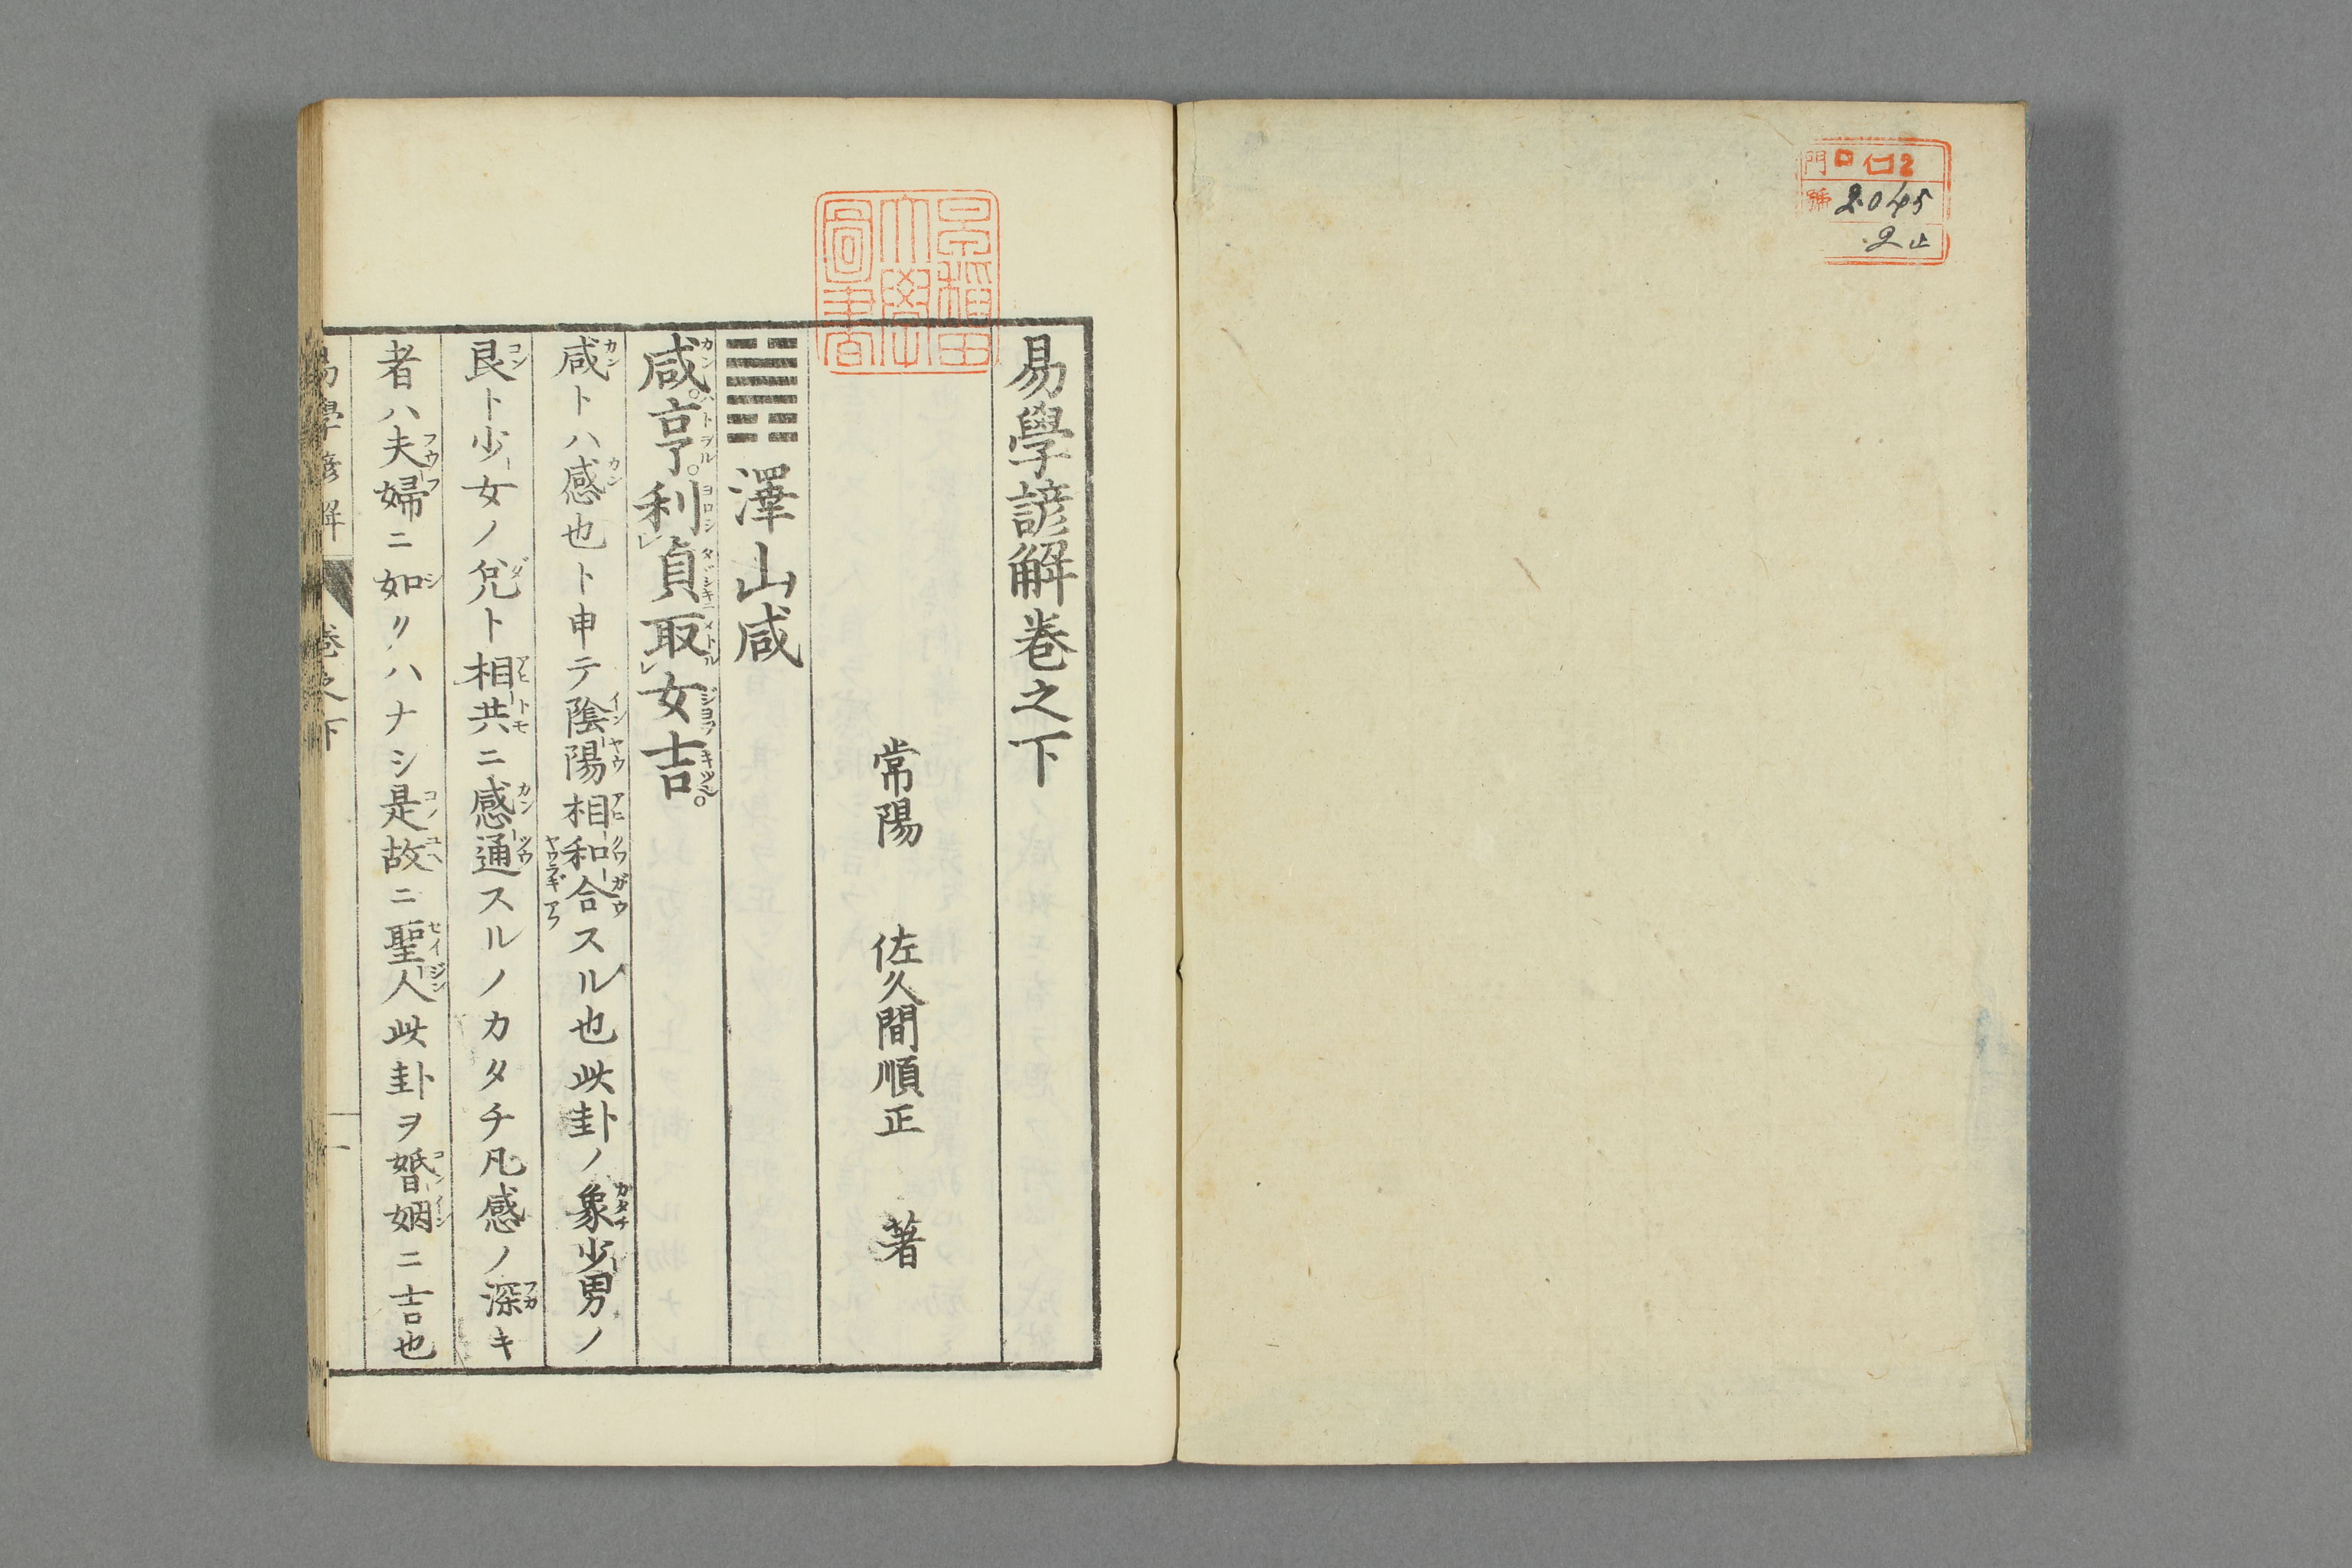 門 ロ 2
號 2045
2止
早稲田大學圖書
易學諺解卷之下
常陽 佐久間順正 著
䷞澤山咸
咸亨利貞取女吉
咸トハ感也ト申テ陰陽相和合スル也此卦ノ象少男ノ
艮ト少女ノ兌ト相共ニ感通スルノカタチ凡感ノ深キ
者ハ夫婦ニ如クハナシ是故ニ聖人此卦ヲ婚姻ニ吉也
易學諺解 卷之下 一